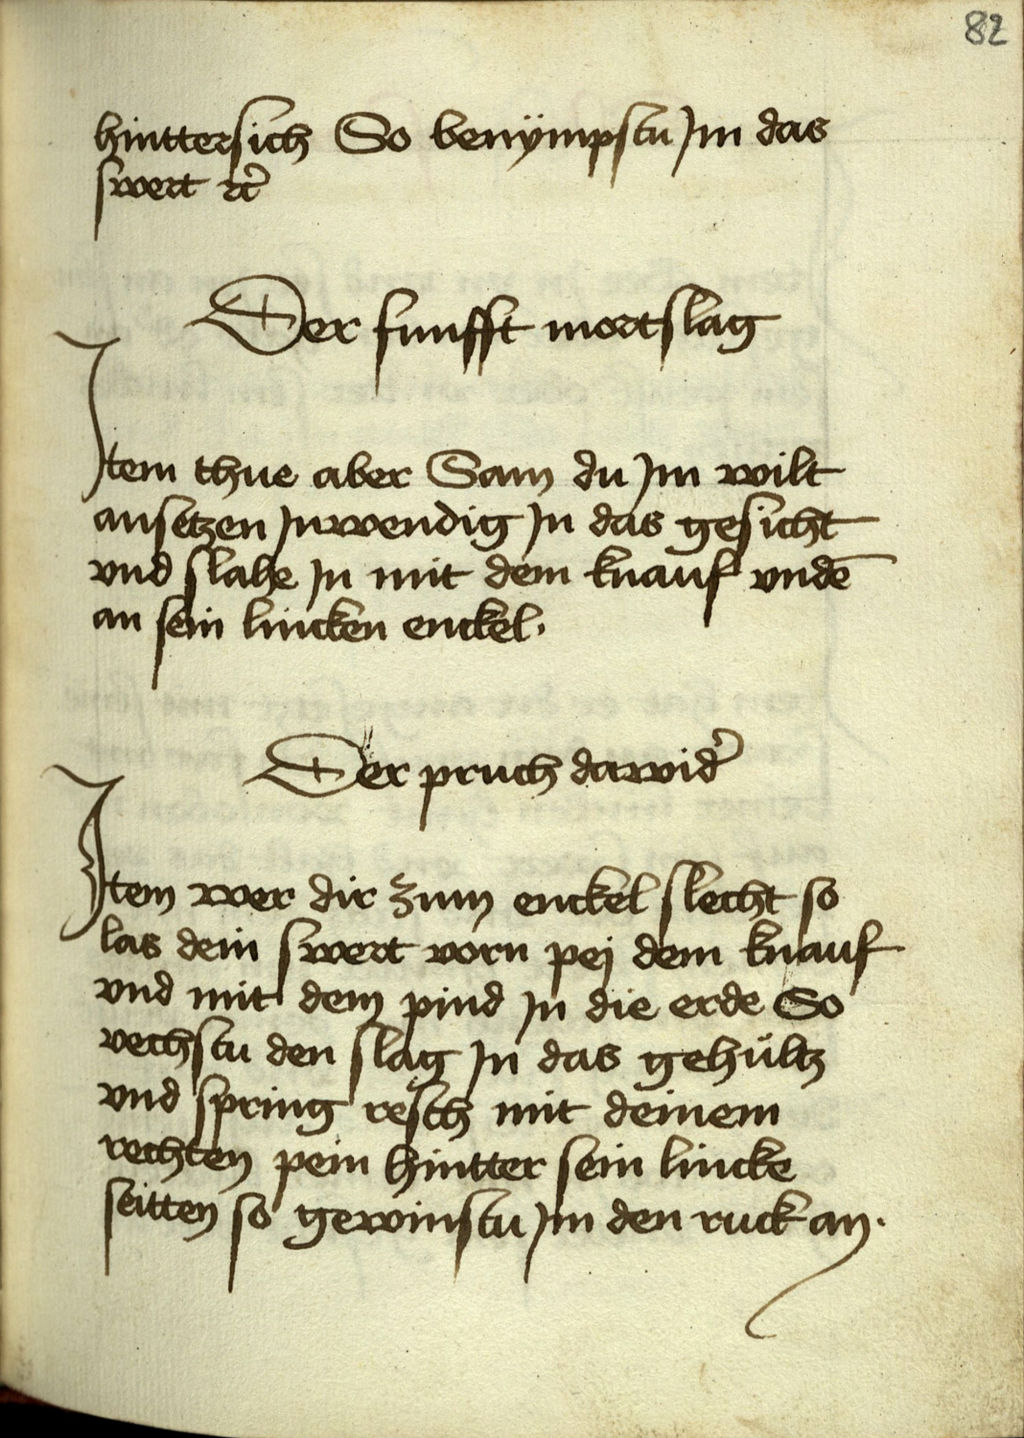 82
hinttersich So benÿmpstu Jm das
swert rcͥ
Der funfft mortslag
Jtem thue aber Sam du Jm wilt
ansetzen Jnwendig Jn das gesicht
vnd slahe Jn mit dem knauf vndē
an sein lincken enckel.
Der pruch dawid'
Jtem wer dir zum enckel slecht so
las dein swert vorn pej dem knauf
vnd mit dem pind Jn die erde So
vechstu den slag Jn das gehültz
vnd spring resch mit deinem
rechten pein hintter sein lincke
seitten so gewinstu Jm den ruck an.